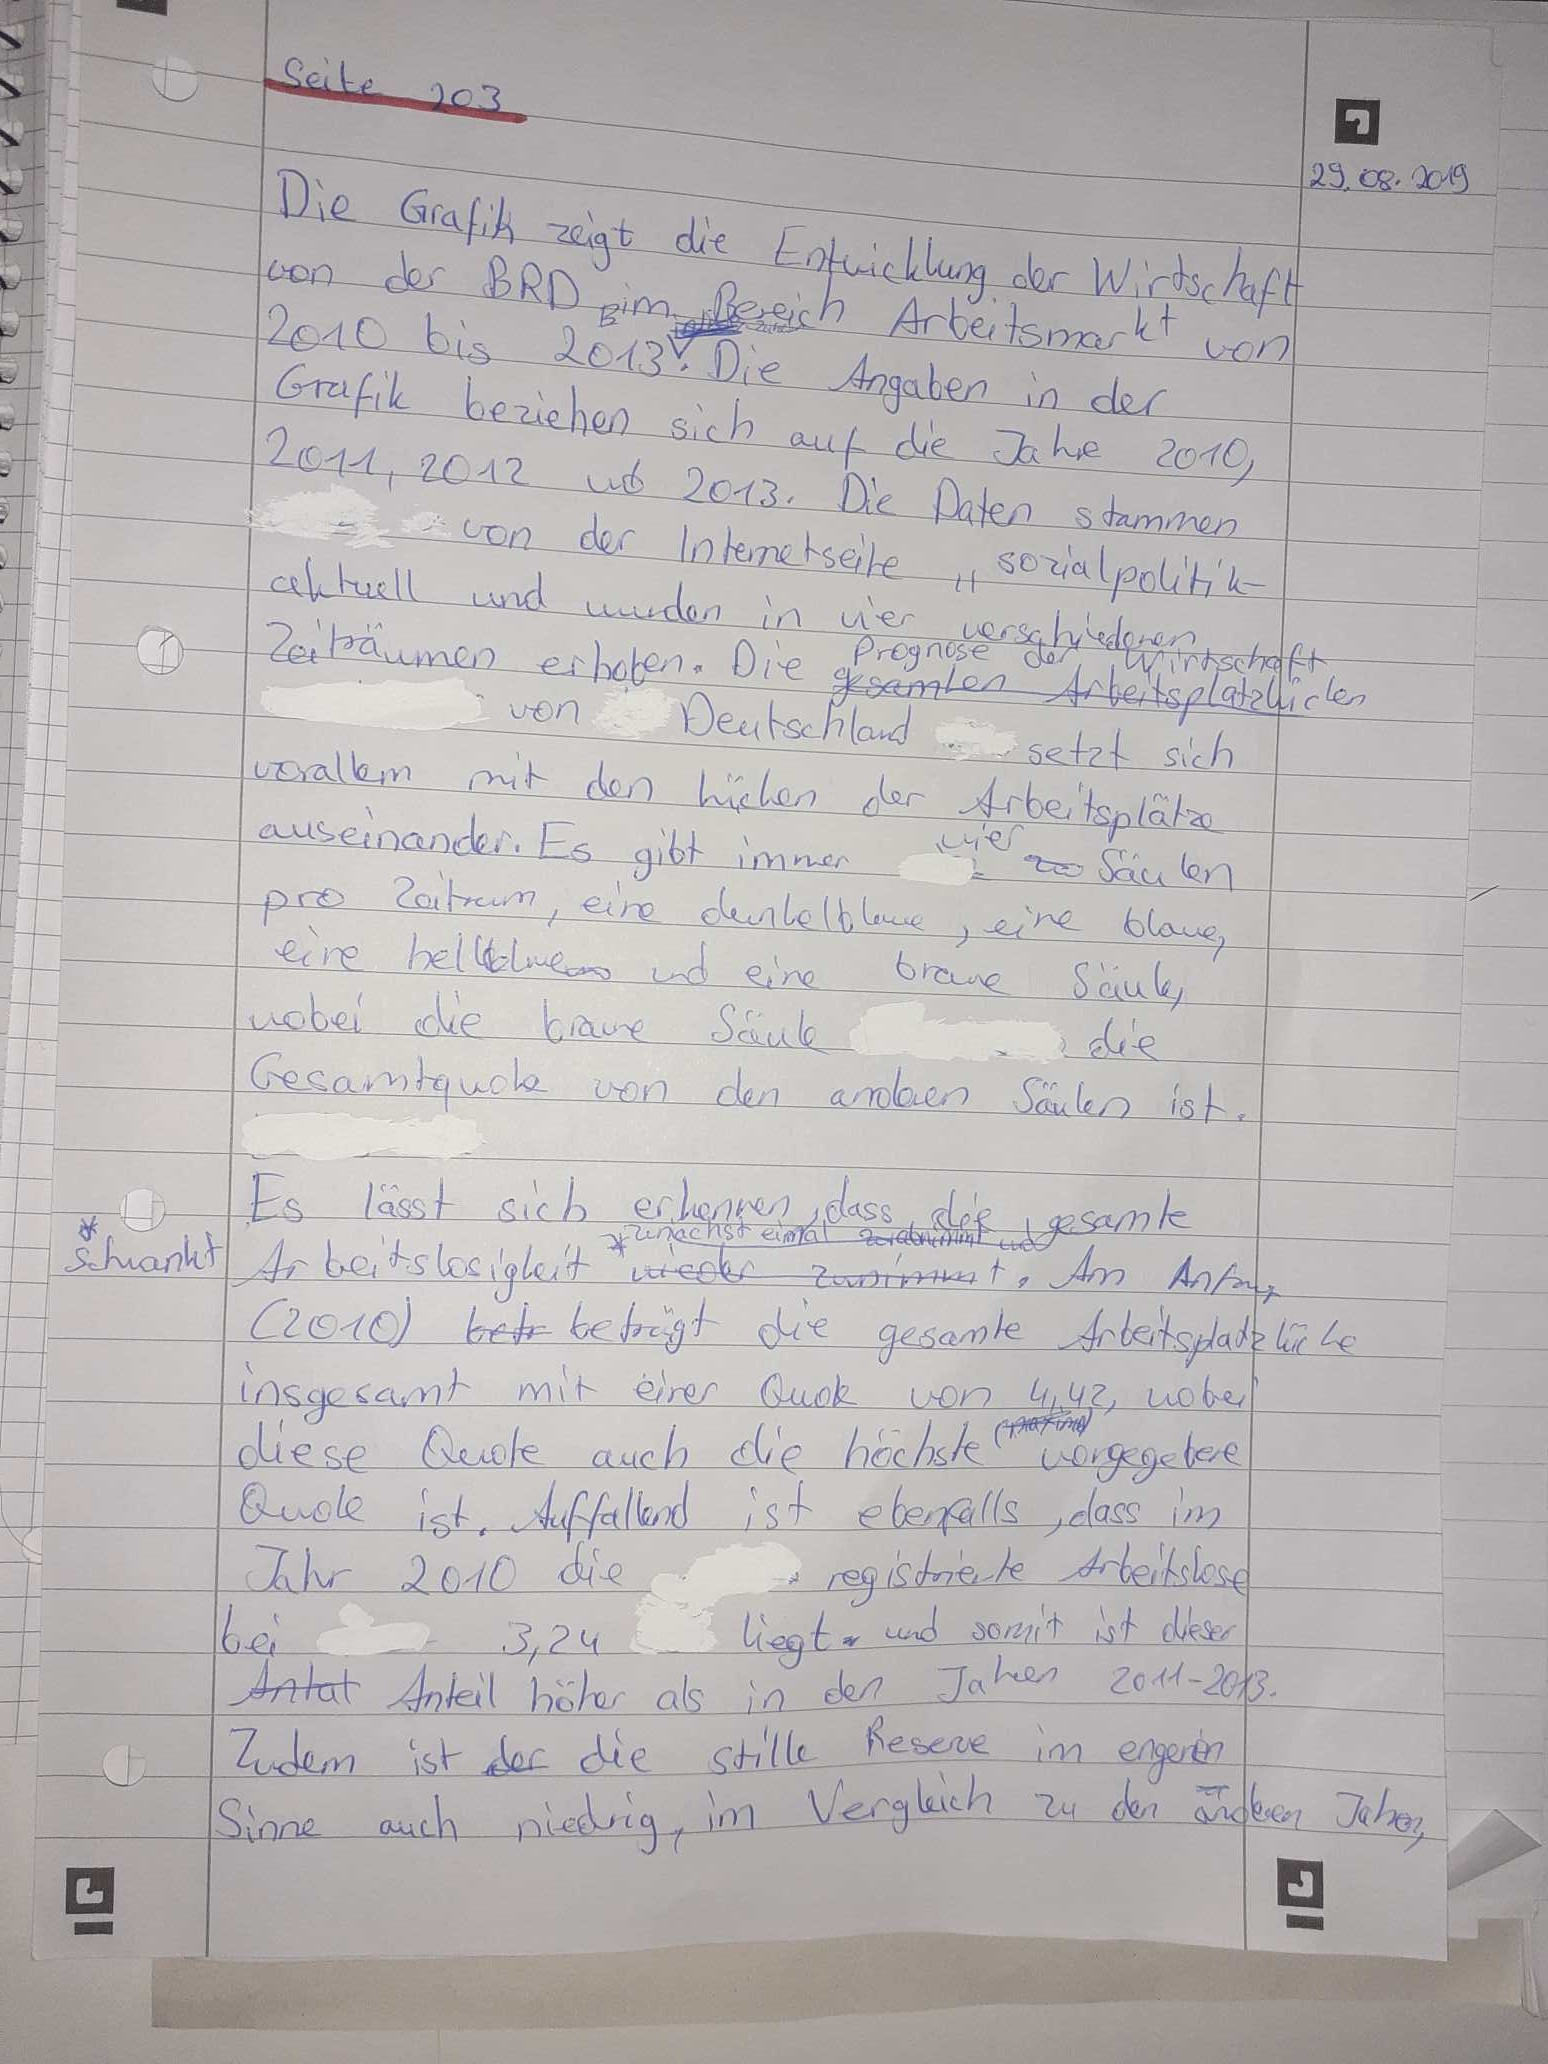 Seite 203
29.08.2019
Die Grafik zeigt die Entwicklung der Wirtschaft
von der BRD im Bereich Arbeitsmarkt von
2010 bis 2013. Die Angaben in der
Grafik beziehen sich auf die Jahre 2010,
2011, 2012 ud 2013. Die Daten stammen
von der Internetseite „sozialpolitik-
aktuell und wurden in vier verschiedenen
Zeiträumen erhoben. Die Prognose der Wirtschaft
gesamten Arbeitsplatzlücken
von Deutschland setzt sich
vorallem mit den lücken der Arbeitsplätze
auseinander. Es gibt immer vier Säulen
pro Zeitraum, eine dunkelblaue, eine blaue,
eine hellblaue und eine braune Säule,
wobei die braune Säule die
Gesamtquote von den anderen Säulen ist.
Es lässt sich erkennen, dass die gesamte
zunächst eimal zuabnimmt und
* schwankt
Arbeitslosigkeit * wieder zunimmt. Am Anfang
(2010) betr beträgt die gesamte Arbeitsplatzlücke
insgesamt mit einer Quote von 4,42, wobei
diese Quote auch die höchste vorgegebene
Quote ist. Auffallend ist ebenfalls, dass im
Jahr 2010 die registrierte Arbeitslose
bei 3,24 liegt und somit ist dieser
Antat Anteil höher als in den Jahren 2011-2013.
Zudem ist der die stille Reserve im engeren
Sinne auch niedrig, im Vergleich zu den anderen Jahren,